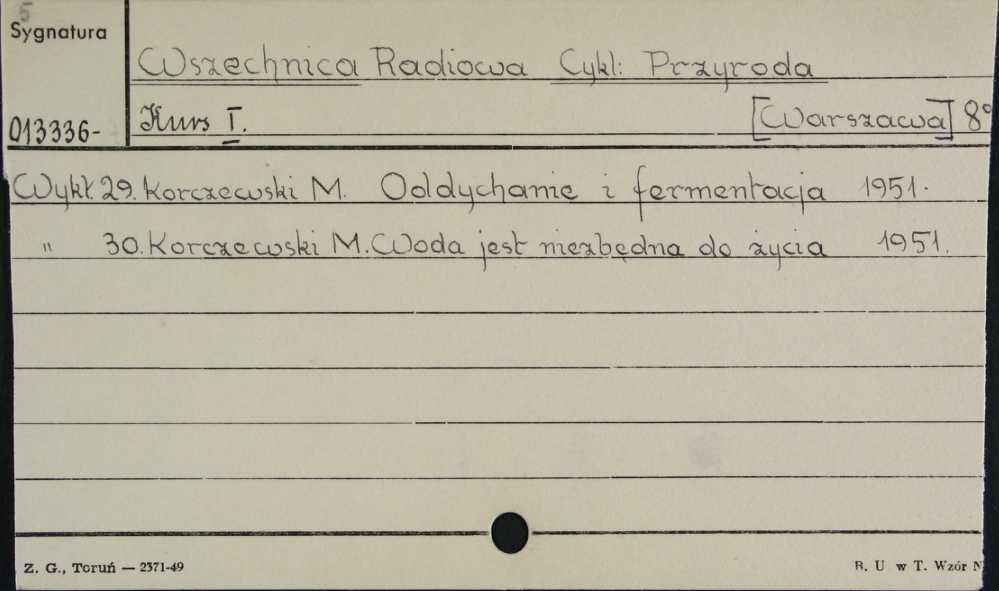 5
Sygnatura
Wszechnica Radiowa Cykl: Przyroda
013336-
Kurs I. [Warszawa] 8°
Wykł. 29. Korczewski M. Oddychanie i fermentacja 1951.
" 30. Korczewski M. Woda jest niezbędna do życia 1951.
Z. G., Toruń — 2371-49
B. U w T. Wzór N